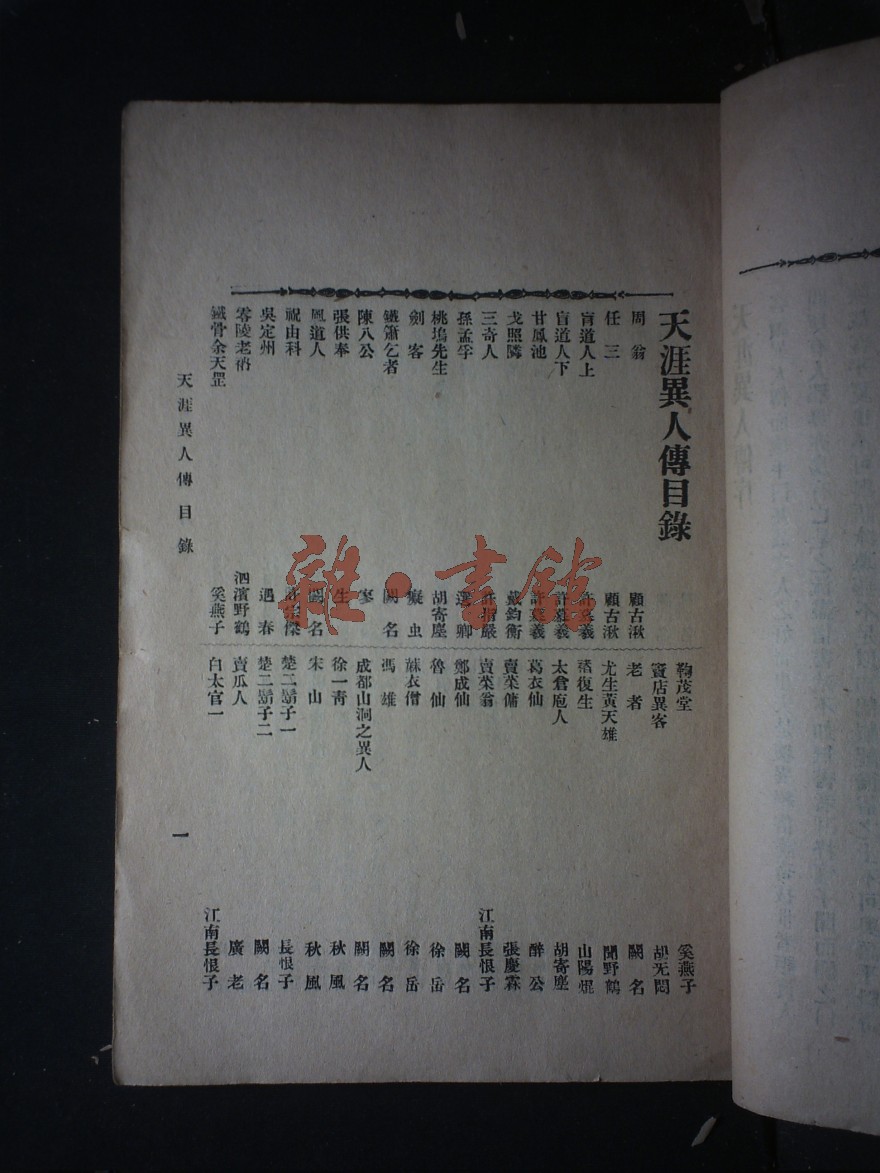 天涯異人傳目錄
周翁 顧古湫
任三 顧古湫
盲道人上 許慕義
盲道人下 許慕義
甘鳳池 許慕義
戈照隣 戴鈞衡
三奇人 許指嚴
孫孟孚 選卿
桃塢先生 胡寄塵
劍客 癡虫
鐵簫乞者 闕名
陳八公
張供奉 生
風道人 闕名
祝由科 許宗傑
吳定州 遇春
零陵老衲 泗濱野鶴
鐵骨余天罡 奚燕子
鞠茂堂 奚燕子
竇店異客 胡无悶
老者 闕名
尤生黃天雄 聞野鶴
褚復生 山陽焜
太倉庖人 胡寄塵
葛衣仙 醉公
賣菜傭 張慶霖
賣菜翁 江南長恨子
鄭成仙 闕名
魯仙 徐岳
蔴衣僧 徐岳
馮雄 闕名
成都山洞之異人 闕名
徐一靑 秋風
宋山 秋風
楚二鬍子一 長恨子
楚二鬍子二 闕名
賣瓜人 廣老
白太官一 江南長恨子
天涯異人傳目錄
一
雜·書館